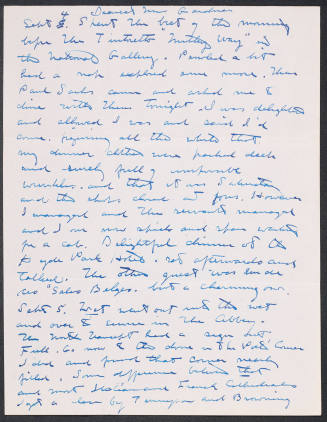 Dearest Mrs. Gardner
Sept 4. Spent the best of the morning
before the Tintoretto "Milky Way" in
the National Gallery. Puzzled a bit
had a nap explored some more. Then
Paul Sachs came and asked me to
dine with them tonight. I was delighted
and allowed I was and said I'd
come, figuring all the while that
my dinner clothes were packed deep
and surely full of
wrinkles, and that it was Saturday
and the shops closed at four. However
I managed and the servants managed
and I am now spick and span waiting
for a cab. Delightful dinner at the
Hyde Park Hotel. sat afterwards and
talked. The other guest was
"Sales Belges". but a charming one.
Sept 5. Wet went out into the wet
and over to service in the Abbey.
The North Transept had a sign out
Full. Go now to the door in the Poets' Corner
I did and found that corner nearly
filled. Some difference between that
and most Italian and French Cathedrals
I sat close by Tennyson and Browning